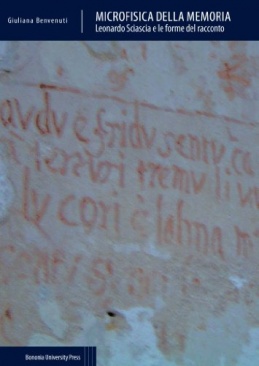 Giuliana Benvenuti
MICROFISICA DELLA MEMORIA
Leonardo Sciascia e le forme del racconto
avdv è fridv sentv ca
tersuri tremv li
lv cori è lalma
Bononia University Press